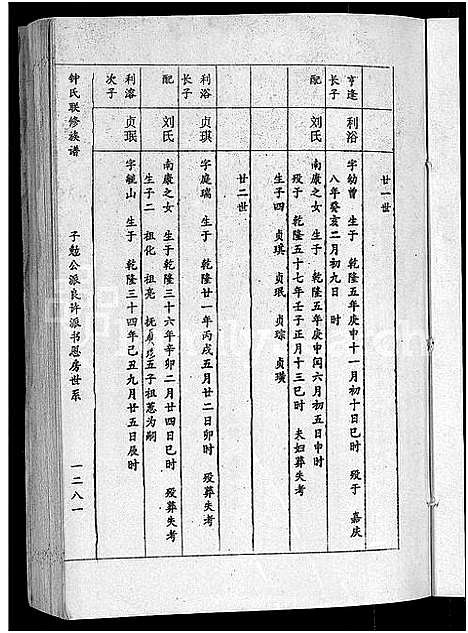 廿一世
亨逢长子 利浴 字幼曾 生于 乾隆五年庚申十一月初十日巳时 殁于 嘉庆
八年癸亥二月初九日 时
配 刘氏 南康之女 生于 乾隆五年庚申闰六月初五日申时
殁于 乾隆五十七年壬子正月十三巳时 夫妇葬失考
生子四 贞琪 贞珉 贞琮 贞璜
廿二世
利浴长子 贞琪 字庭瑞 生于 乾隆廿一年丙戌五月廿二日卯时 殁葬失考
配 刘氏 南康之女 生于乾隆三十六年辛卯二月廿四日巳时 殁葬失考
生子二 祖化 祖亮 抚贞 五子祖葱为嗣
利溶次子 贞珉 字毓山 生于 乾隆三十四年己丑九月廿五日辰时
钟氏联修族谱 子勉公派良许派书恩房世系 一二八一